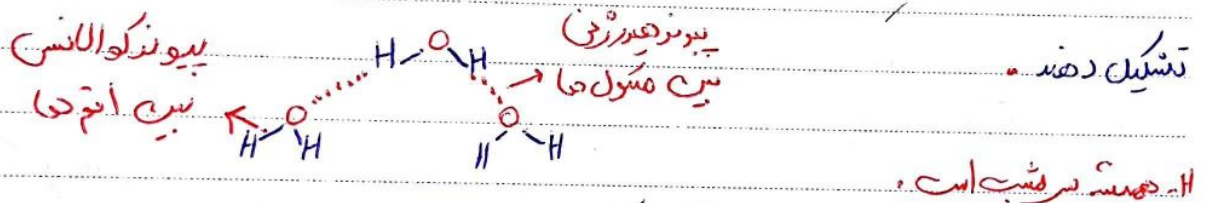 تشکیل دهند.
پیوند هیدروژنی
بین مولکول ها
پیوند کووالانسی
بین اتم ها
H O H
O H H
O H
H- همیشه سر مثبت است.